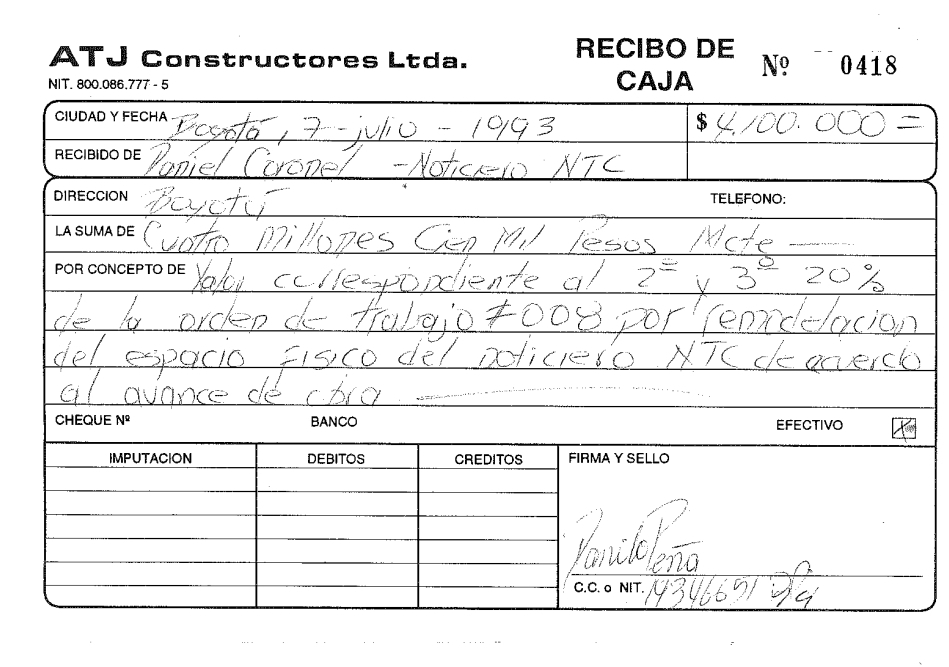 ATJ Constructores Ltda.
RECIBO DE CAJA Nº 0418
NIT. 800.086.777 - 5
CIUDAD Y FECHA Bogotá, 7 - julio - 1993 $ 4.100.000 =
RECIBIDO DE Daniel Coronel - Noticiero NTC
DIRECCION Bogotá TELEFONO:
LA SUMA DE Cuatro Millones Cien Mil Pesos Mcte
POR CONCEPTO DE Valor correspondiente al 2º y 3º 20%
de la orden de trabajo #008 por remodelacion
del espacio Fisico del noticiero NTC de acuerdo
al avance de obra
CHEQUE Nº BANCO EFECTIVO
IMPUTACION DEBITOS CREDITOS FIRMA Y SELLO
Danilo Peña
C.C. o NIT.